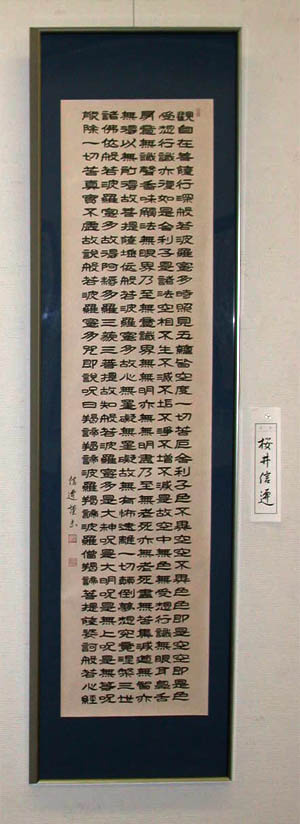 觀自在菩薩行深般若波羅蜜多時照見五蘊皆空度一切苦厄舍利子色不異空空不異色色即是空空即是色
受想行識亦復如是舍利子是諸法空相不生不滅不垢不淨不增不減是故空中無色無受想行識無眼耳鼻舌
身意無色聲香味觸法無眼界乃至無意識界無無明亦無無明盡乃至無老死亦無老死盡無苦集滅道無智亦
無得以無所得故菩提薩埵依般若波羅蜜多故心無罣礙無罣礙故無有恐怖遠離一切顛倒夢想究竟涅槃三世
諸佛依般若波羅蜜多故得阿耨多羅三藐三菩提故知般若波羅蜜多是大神呪是大明呪是無上呪是無等等呪
能除一切苦真實不虛故說般若波羅蜜多呪即說呪曰羯諦羯諦波羅羯諦波羅僧羯諦菩提薩婆訶般若心經
信蓮謹
桜井信蓮